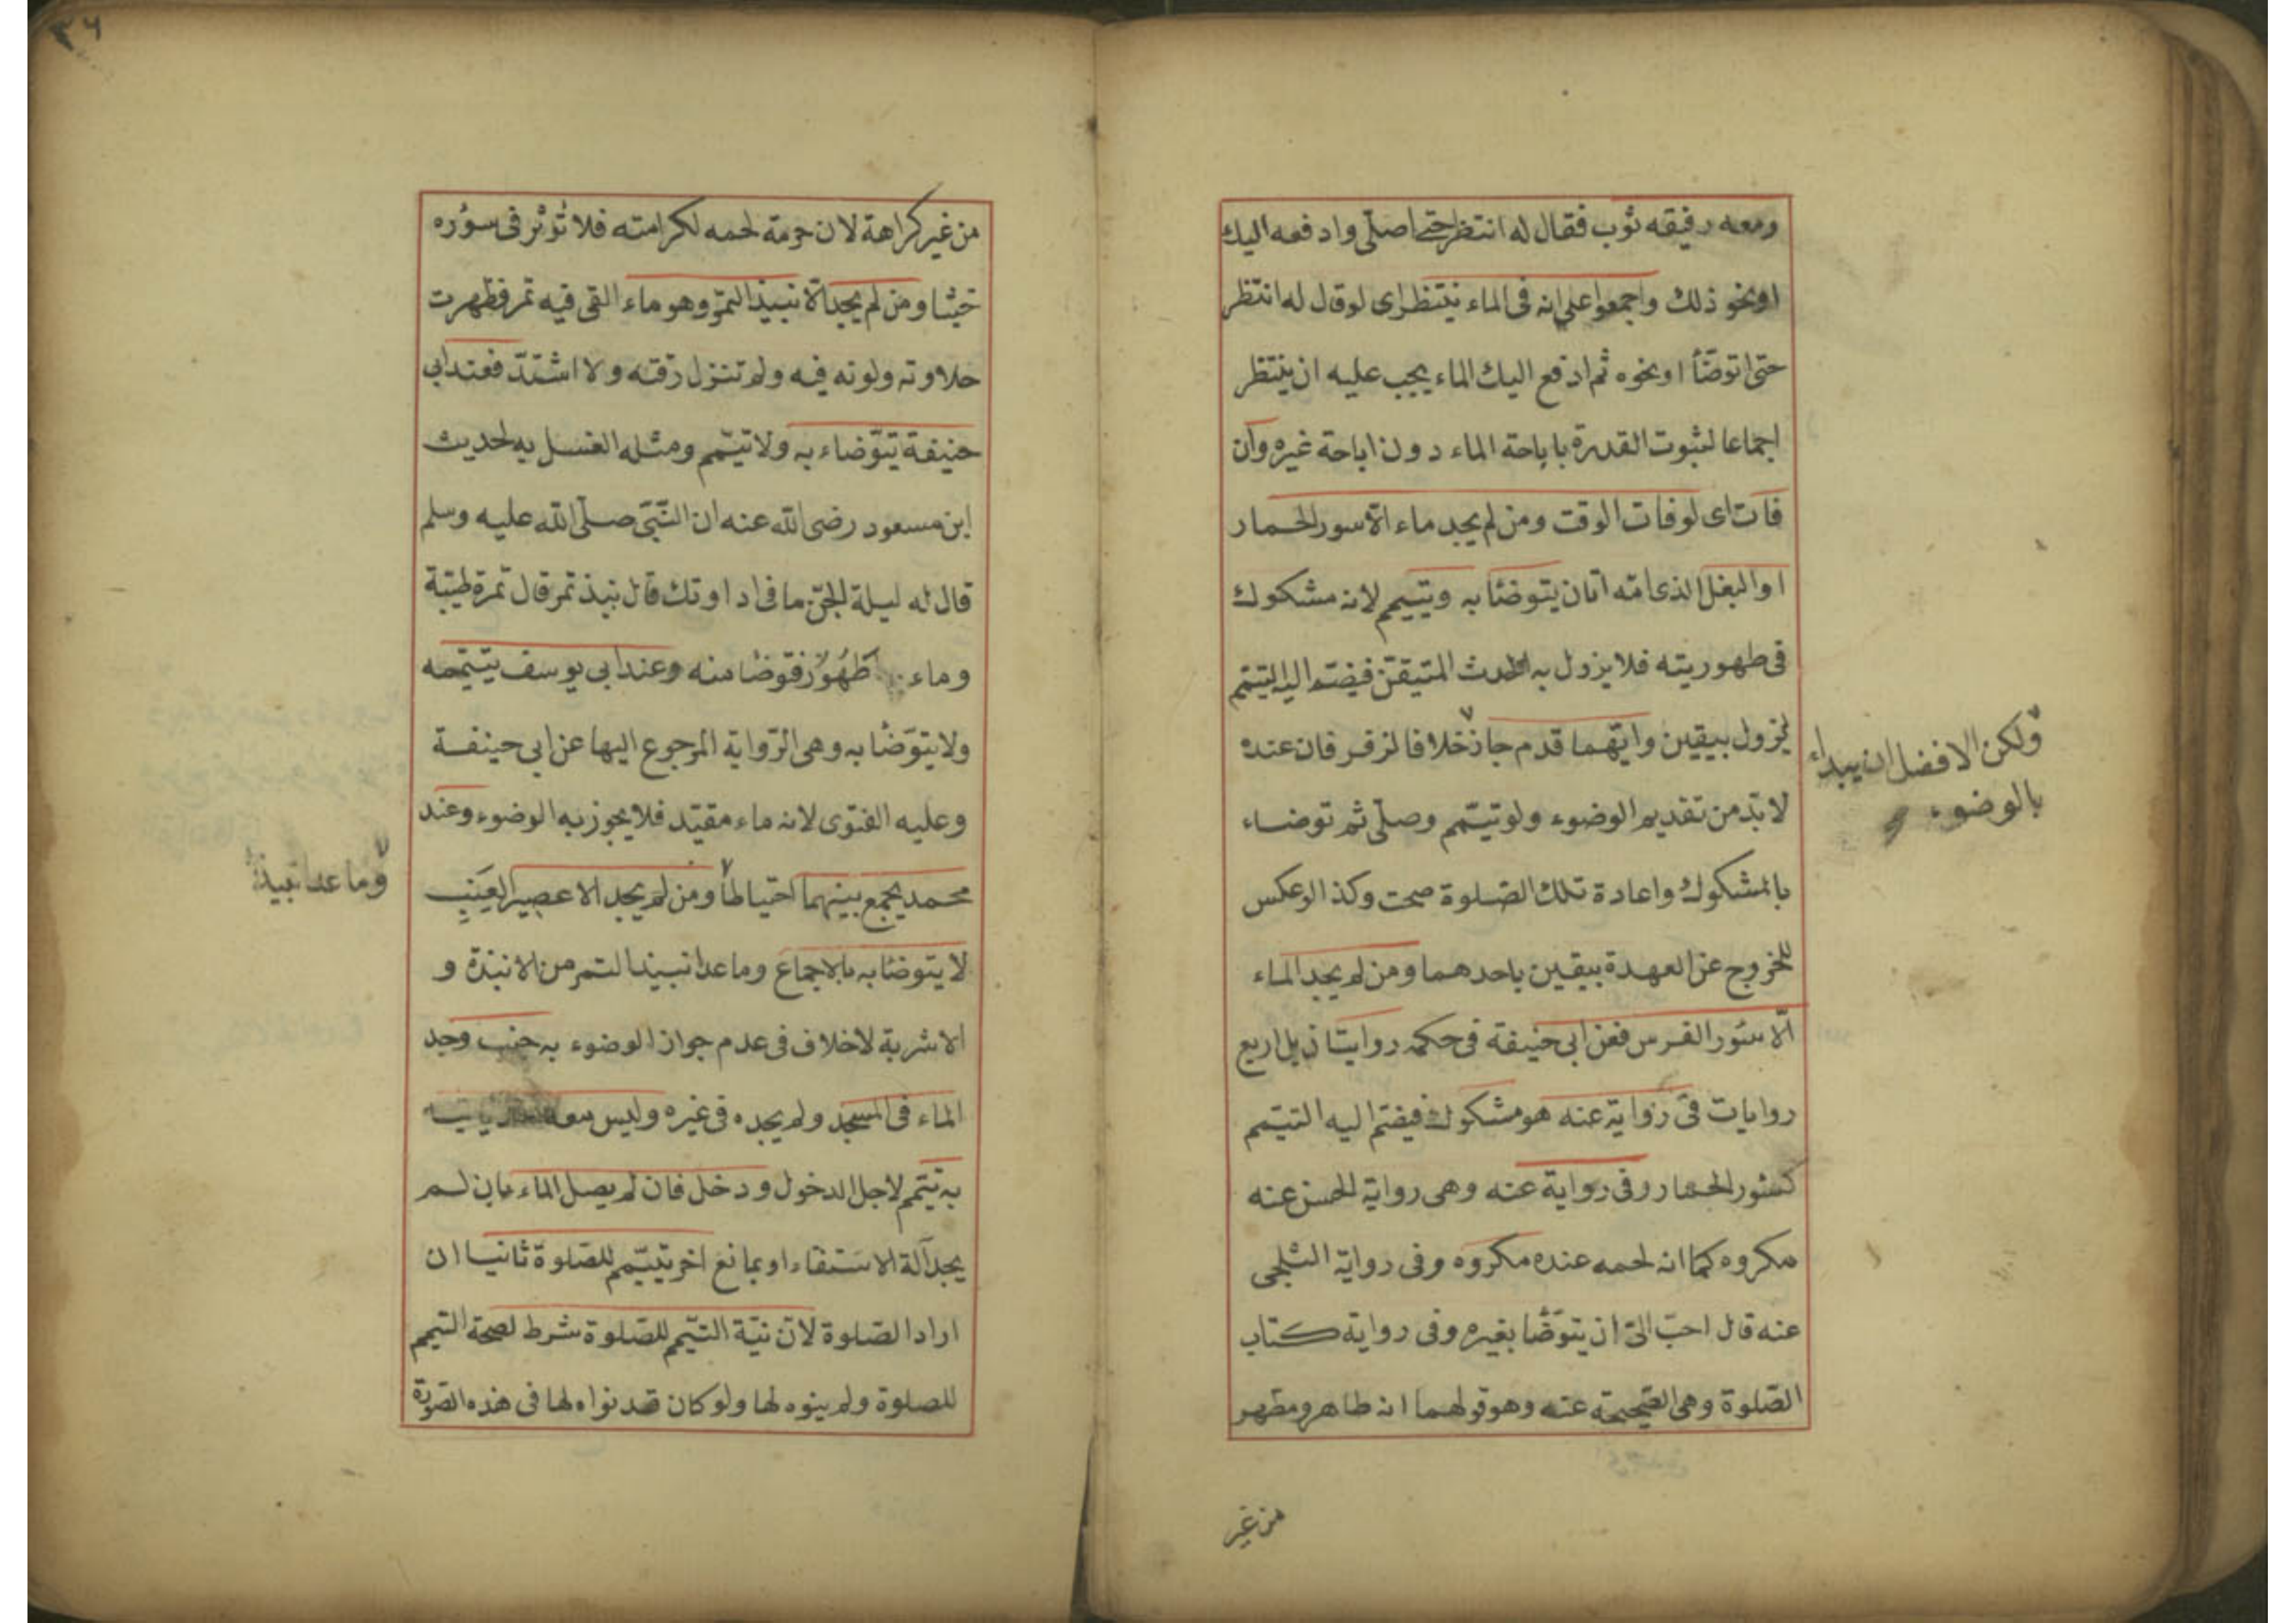 ومعه رفيقه ثوب فقال له انتظر حتى اصلّى وادفعه اليك
او نحو ذلك واجمعوا على انه فى الماء ينتظر اى لو قال له انتظر
حتى اتوضّأ او نحوه ثم ادفع اليك الماء يجب عليه ان ينتظر
اجماعا لثبوت القدرة باباحة الماء دون اباحة غيره وان
فات اى لو فات الوقت ومن لم يجد ماء الّا سور الحمار
او البغل الذى امّه اتان يتوضّا به ويتيمم لانه مشكوك
فى طهوريته فلا يزول به الحدث المتيقن فيضم اليه التيمّم
ليزول بيقين وايّهما قدم جاز خلافا لزفر فان عنده
ولكن الافضل ان يبداء
بالوضوء
لا بدّ من تقديم الوضوء ولو تيمّم وصلّى ثم توضاء
بالمشكوك واعادة تلك الصّلوة صحت وكذا لو عكس
للخروج عن العهدة بيقين باحدهما ومن لم يجد الماء
الّا سُور الفرس فعن ابى حنيفة فى حكمه روايتان بل اربع
روايات فى رواية عنه هو مشكوك فيضم اليه التيمّم
كسُور الحمار وفى رواية عنه وهى رواية الحسن عنه
مكروه كما انه لحمه عنده مكروه وفى رواية الثلجى
عنه قال احبّ الىّ ان يتوضّا بغيره وفى رواية كتاب
الصّلوة وهى الصحيحة عنه وهو قولهما انه طاهر ومطهر
من غير
٣٦
من غير كراهة لان حرمة لحمه لكرامته فلا تُوثر فى سوُره
خبثا ومن لم يجد الّا نبيذ التمر وهو ماء القى فيه تمر فظهرت
حلاوته ولونه فيه ولم تنزل رقّته ولا اشتدّ فعند ابى
حنيفة يتوّضاء به ولا تيمّم ومثله الغسل به لحديث
ابن مسعود رضى الله عنه ان النّبىّ صلّى الله عليه وسلم
قال له ليلة الجنّ ما فى اداوتك قال نبيذ تمر قال تمرة طيّبة
وماء طَهُورٌ فتوّضا منه وعند ابى يوسف يتيمّمه
ولا يتوّضا به وهى الرّواية المرجوع اليها عن ابى حنيفة
وعليه الفتوى لانه ماء مقيّد فلا يجوز به الوضوء وعند
محمد يجمع بينهما احتياطا ومن لم يجد الا عصير العِنَبِ
وما عدا نبيذ
لا يتوضّا به بالاجماع وما عدا نبيذ التمر من الانبذة و
الاشربة لا خلاف فى عدم جواز الوضوء به جنب وجد
الماء فى المسجد ولم يجده فى غيره وليس معه
به تيمّم لاجل الدخول ودخل فان لم يصل الماء بان لم
يجد آلة الاستقاء او بمانع اخر تيمّم للصّلوة ثانيا ان
اراد الصّلوة لانّ نيّة التيّمم للصّلوة شرط لصحة التيمم
للصلوة ولم ينوه لها ولو كان قد نواه لها فى هذه الصّورة